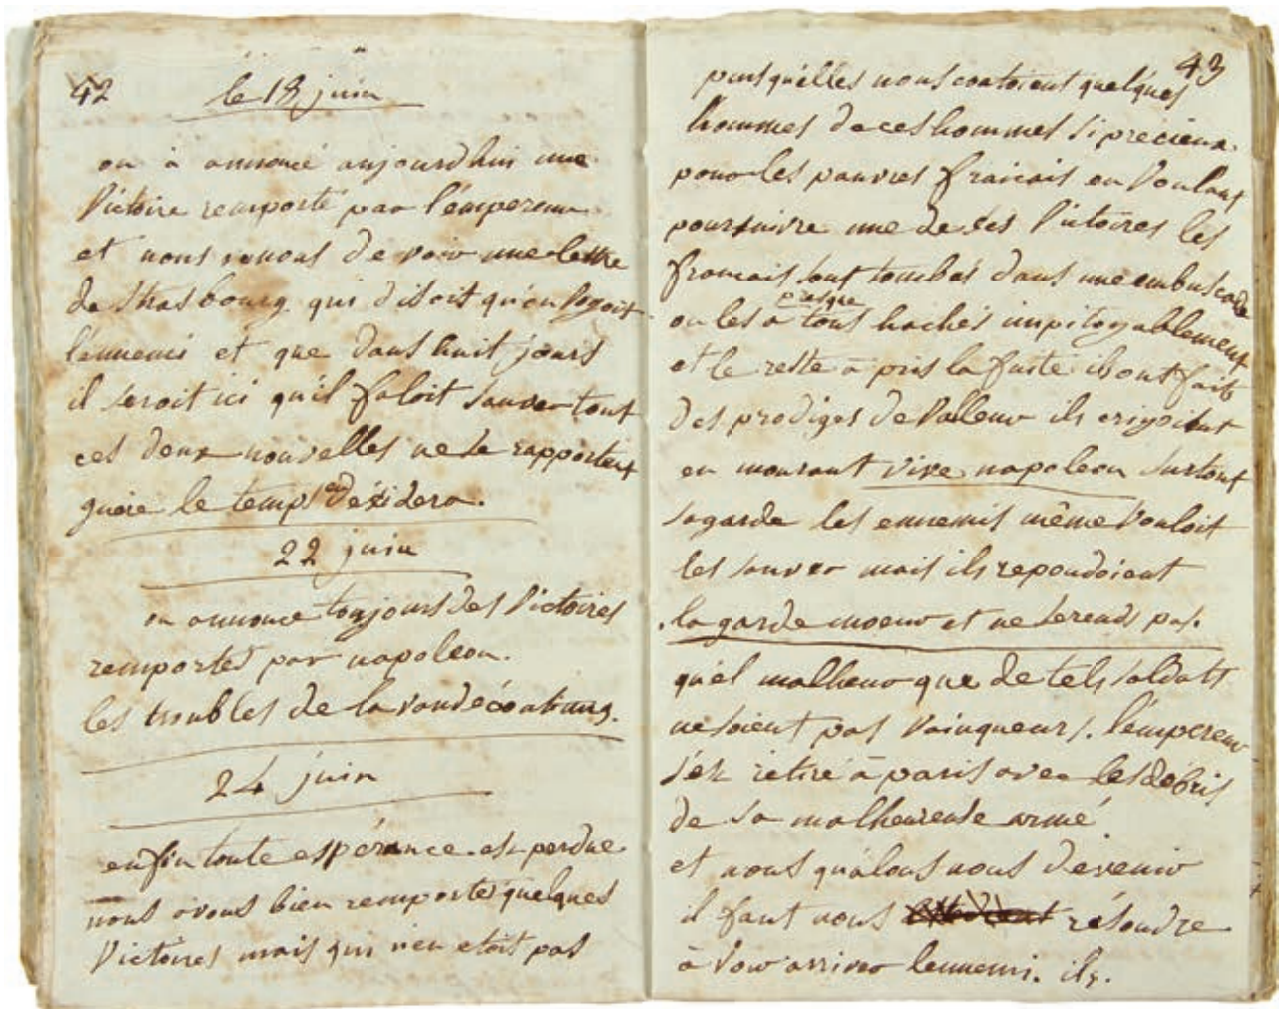 42
le 18 juin
on à annoncé aujourdhui une
Victoire remporté par l'émpereur
et nous venons de voir une lettre
de Strasbourg qui disoit qu'on voyoit
l'ennemi et que dans huit jours
il seroit ici qu'il faloit sauver tout
ces deux nouvelles ne se rapportent
guère le temps en décidera.
22 juin
on annonce toujours des Victoires
remportés par napoleon.
les troubles de la vandé
24 juin
enfin toute espérance est perdue
nous avons bien remporté quelques
Victoires mais qui n'en etoit pas
43
puisqu'elles nous coutoient quelques
hommes de ces hommes si precieux
pour les pauvres francais en voulant
poursuivre une de ses Victoires les
francais sont tombés dans une embuscade
on les a presque tous hachés impitoyablement
et le reste à pris la fuite ils ont fait
des prodiges de valleur ils criyoient
en mourant vive napoleon surtout
sa garde les ennemis même vouloit
les sauver mais ils repondoient
la garde moeur et ne se rends pas.
quel malheur que de tels soldats
ne soient pas vainqueurs. l'émpereur
s'est retiré à paris avec les débris
de sa malheureuse armé
et nous qu'alons nous devenir
il faut nous résoudre
à voir arriver lennemi. ils.